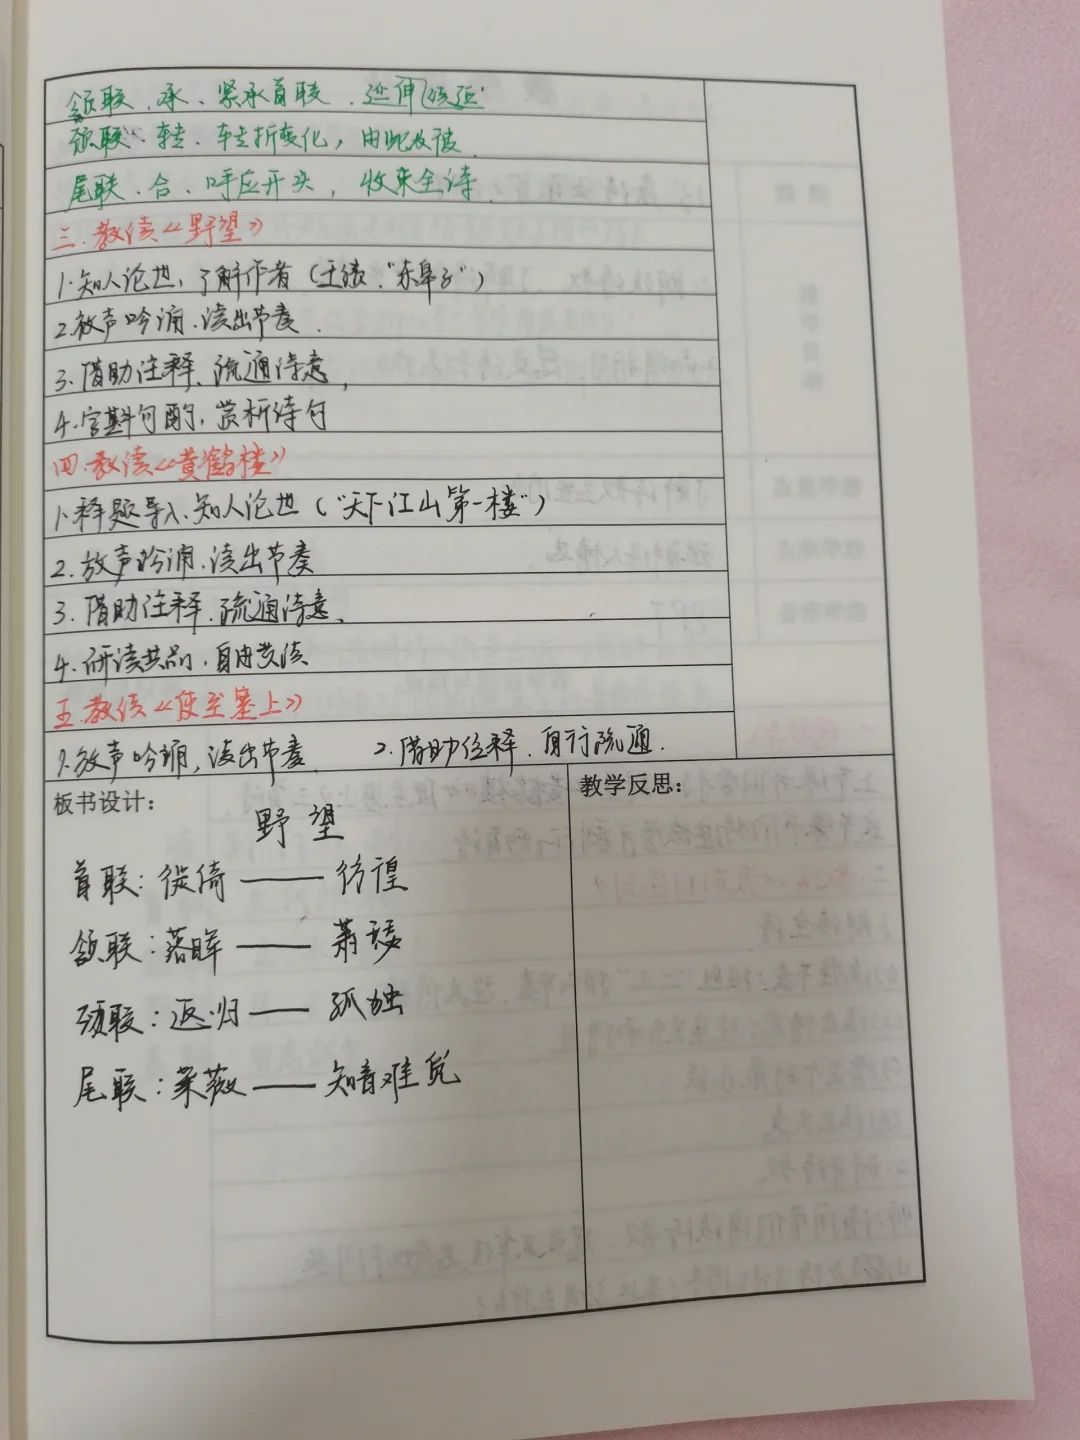 颔联、承、紧承首联、延伸
颈联、转、转折变化，由此及彼
尾联、合、呼应开头，收束全诗
三.教读《野望》
1.知人论世，了解作者（王绩，"东皋子"）
2.放声吟诵、读出节奏.
3.借助注释、疏通诗意，
4.字斟句酌，赏析诗句
四.教读《黄鹤楼》
1.释题导入、知人论世（"天下江山第一楼"）
2.放声吟诵、读出节奏
3.借助注释、疏通诗意、
4.研读共品，自由
五.教读《使至塞上》
1.放声吟诵，读出节奏. 2.借助注释、自行疏通.
板书设计： 教学反思：
野望
首联：徙倚——彷徨
颔联：落晖——萧瑟
颈联：返归——孤独
尾联：采薇——知音难觅